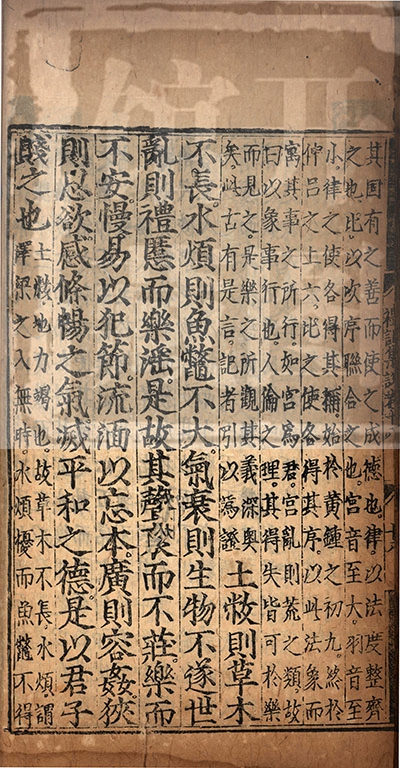 禮記集說卷
其固有之善而使之成德也。律以法度整齊
之也。比以次序聯合之也。宮音至大。羽音至
小。律之使各得其稱。始於黃鍾之初九。終於
仲呂之上六。比之使各得其序。以此法象而
寓其事之所行。如宮爲君。宮亂則荒之類。故
曰以象事行也。人倫之理。其得失皆可於樂
而見之。是樂之所觀其義深奥
矣。此古有是言。記者引以爲證
土敝則草木
不長。水煩則魚鼈不大。氣衰則生物不遂。世
亂則禮慝而樂淫。是故其聲哀而不莊。樂而
不安。慢易以犯節。流湎以忘本。廣則容姦。狹
則思欲。感條暢之氣。滅平和之德。是以君子
賤之也
土敝地力竭也。故草木不長。水煩謂
澤梁之入無時。水煩擾而魚鼈不得